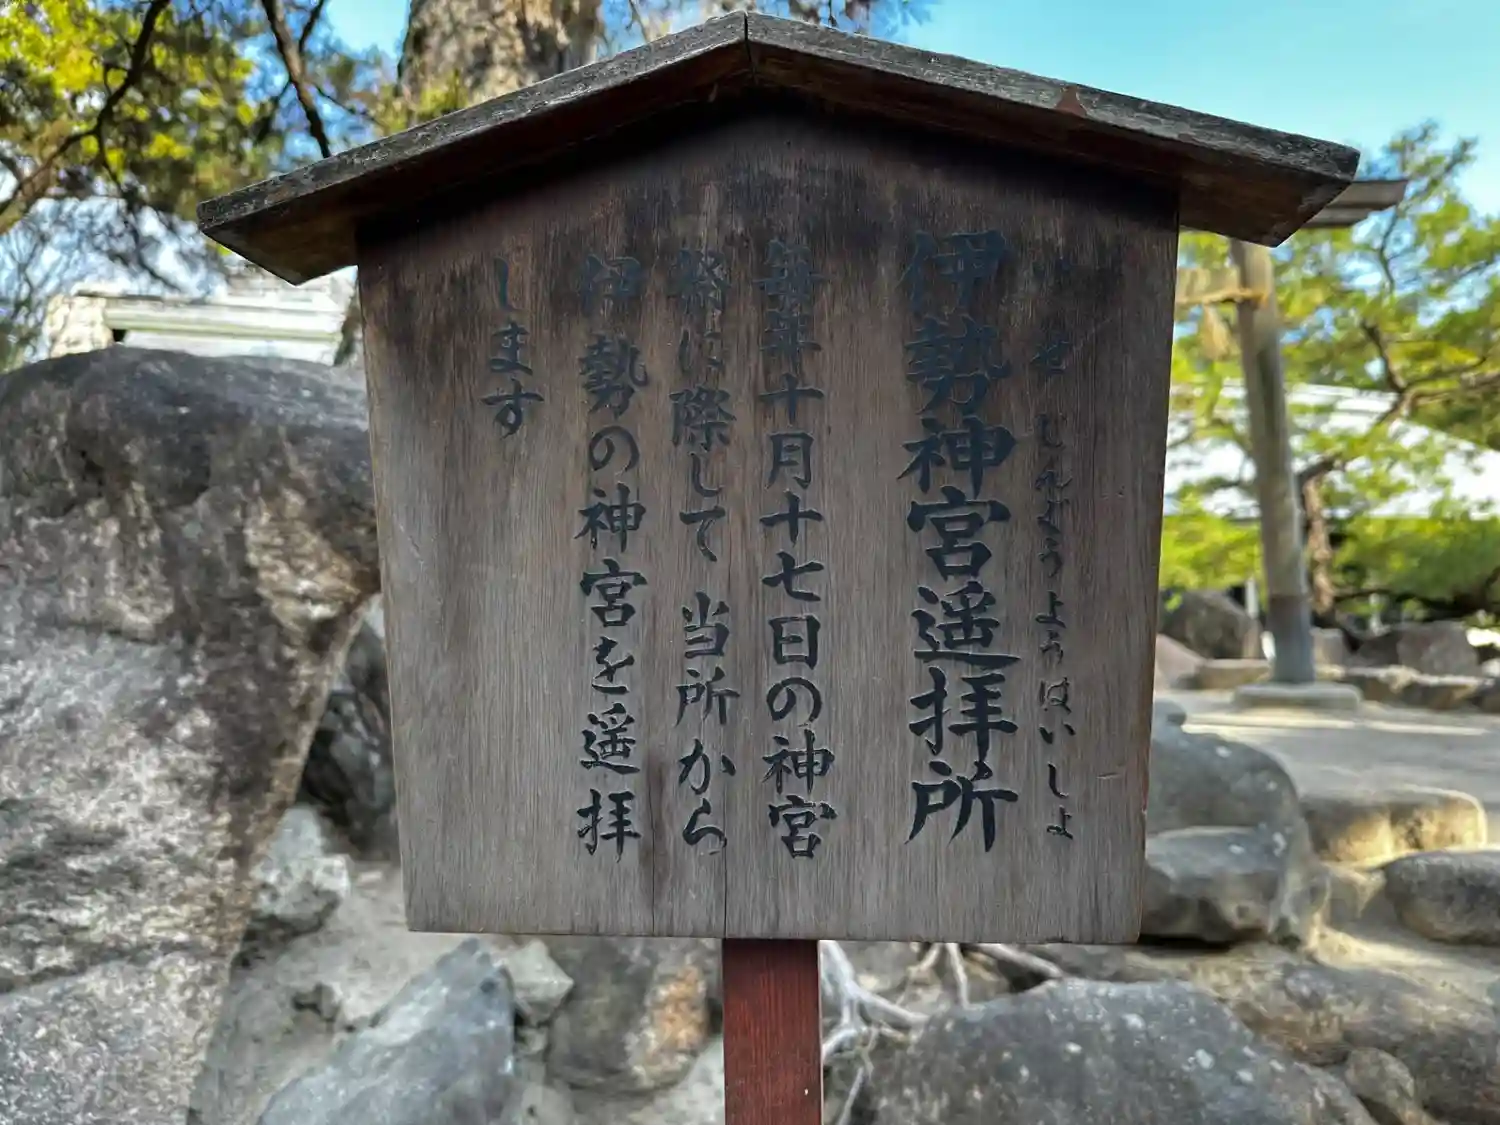 いせじんぐうようはいしよ
伊勢神宮遥拝所
毎年十月十七日の神宮
祭に際して当所から
伊勢の神宮を遥拝
します